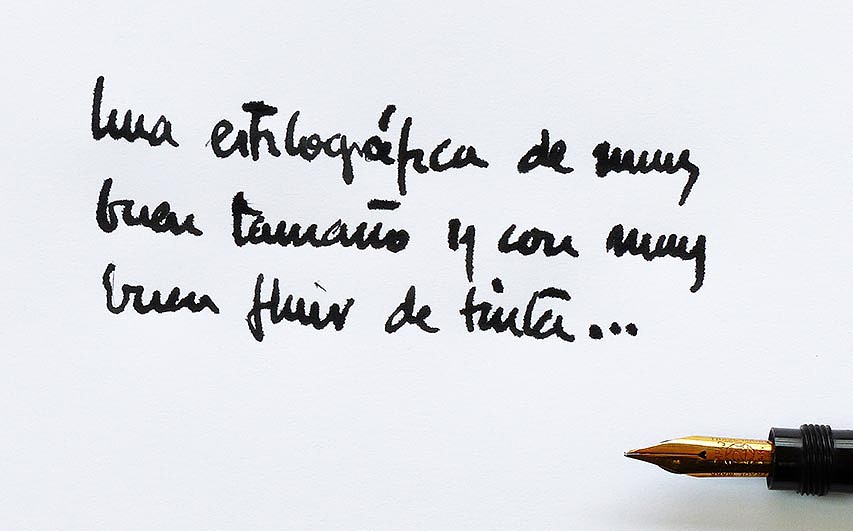 Una estilográfica de muy
buen tamaño y con muy
buen fluir de tinta...